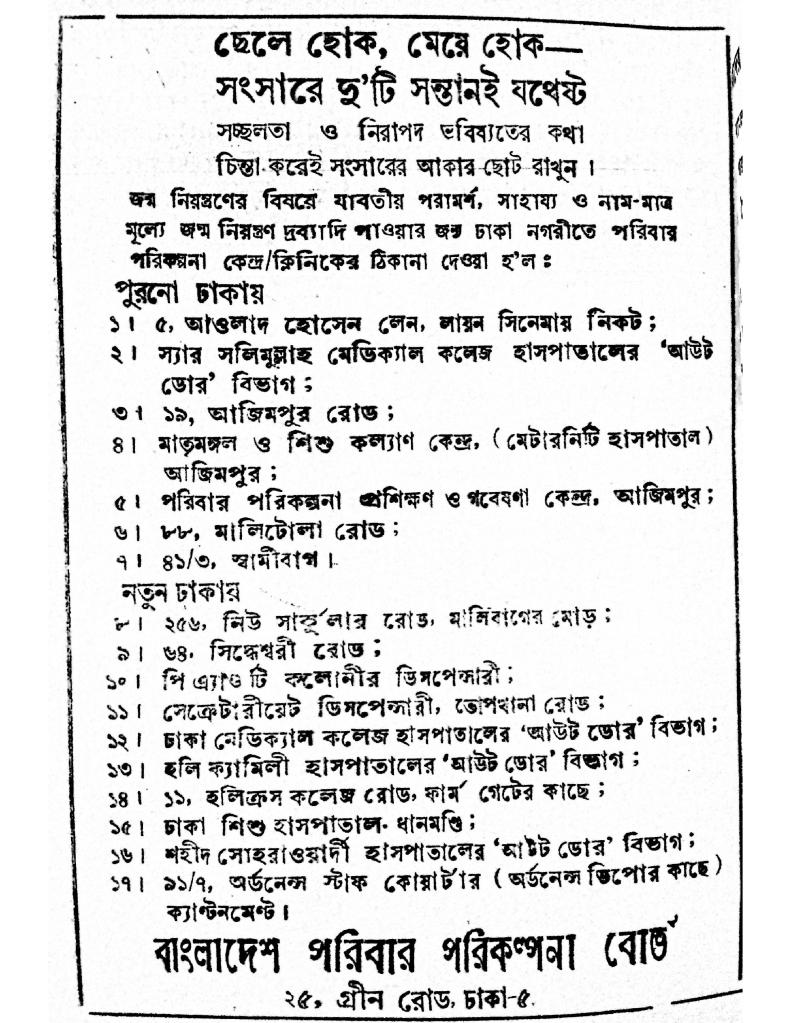 ছেলে হোক, মেয়ে হোক—
সংসারে দু'টি সন্তানই যথেষ্ট
সচ্ছলতা ও নিরাপদ ভবিষ্যতের কথা
চিন্তা করেই সংসারের আকার ছোট রাখুন ।
জন্ম নিয়ন্ত্রণের বিষয়ে যাবতীয় পরামর্শ, সাহায্য ও নাম-মাত্র
মূল্যে জন্ম নিয়ন্ত্রণ দ্রব্যাদি পাওয়ার জন্য ঢাকা নগরীতে পরিবার
পরিকল্পনা কেন্দ্র/ক্লিনিকের ঠিকানা দেওয়া হ'ল :
পুরনো ঢাকায়
১। ৫, আওলাদ হোসেন লেন, লায়ন সিনেমায় নিকট ;
২। স্যার সলিমুল্লাহ মেডিক্যাল কলেজ হাসপাতালের 'আউট
ডোর' বিভাগ ;
৩। ১৯, আজিমপুর রোড ;
৪। মাতৃমঙ্গল ও শিশু কল্যাণ কেন্দ্র, (মেটারনিটি হাসপাতাল)
আজিমপুর ;
৫। পরিবার পরিকল্পনা প্রশিক্ষণ ও গবেষণা কেন্দ্র, আজিমপুর ;
৬। ৮৮, মালিটোলা রোড ;
৭। ৪১/৩, স্বামীবাগ ।
নতুন ঢাকায়
৮। ২৫৬, নিউ সার্কুলার রোড, মালিবাগের মোড় ;
৯। ৬৪, সিদ্ধেশ্বরী রোড ;
১০। পি এ্যাণ্ড টি কলোনীর ডিসপেন্সারী ;
১১। সেক্রেটারীয়েট ডিসপেন্সারী, তোপখানা রোড ;
১২। ঢাকা মেডিক্যাল কলেজ হাসপাতালের 'আউট ডোর' বিভাগ ;
১৩। হলি ফ্যামিলী হাসপাতালের 'আউট ডোর' বিভাগ ;
১৪। ১১, হলিক্রস কলেজ রোড, ফার্ম গেটের কাছে ;
১৫। ঢাকা শিশু হাসপাতাল, ধানমণ্ডি ;
১৬। শহীদ সোহরাওয়ার্দী হাসপাতালের 'আউট ডোর' বিভাগ ;
১৭। ৯১/৭, অর্ডনেন্স স্টাফ কোয়ার্টার (অর্ডনেন্স ডিপোর কাছে)
ক্যাণ্টনমেণ্ট ।
বাংলাদেশ পরিবার পরিকল্পনা বোর্ড
২৫, গ্রীন রোড, ঢাকা-৫.